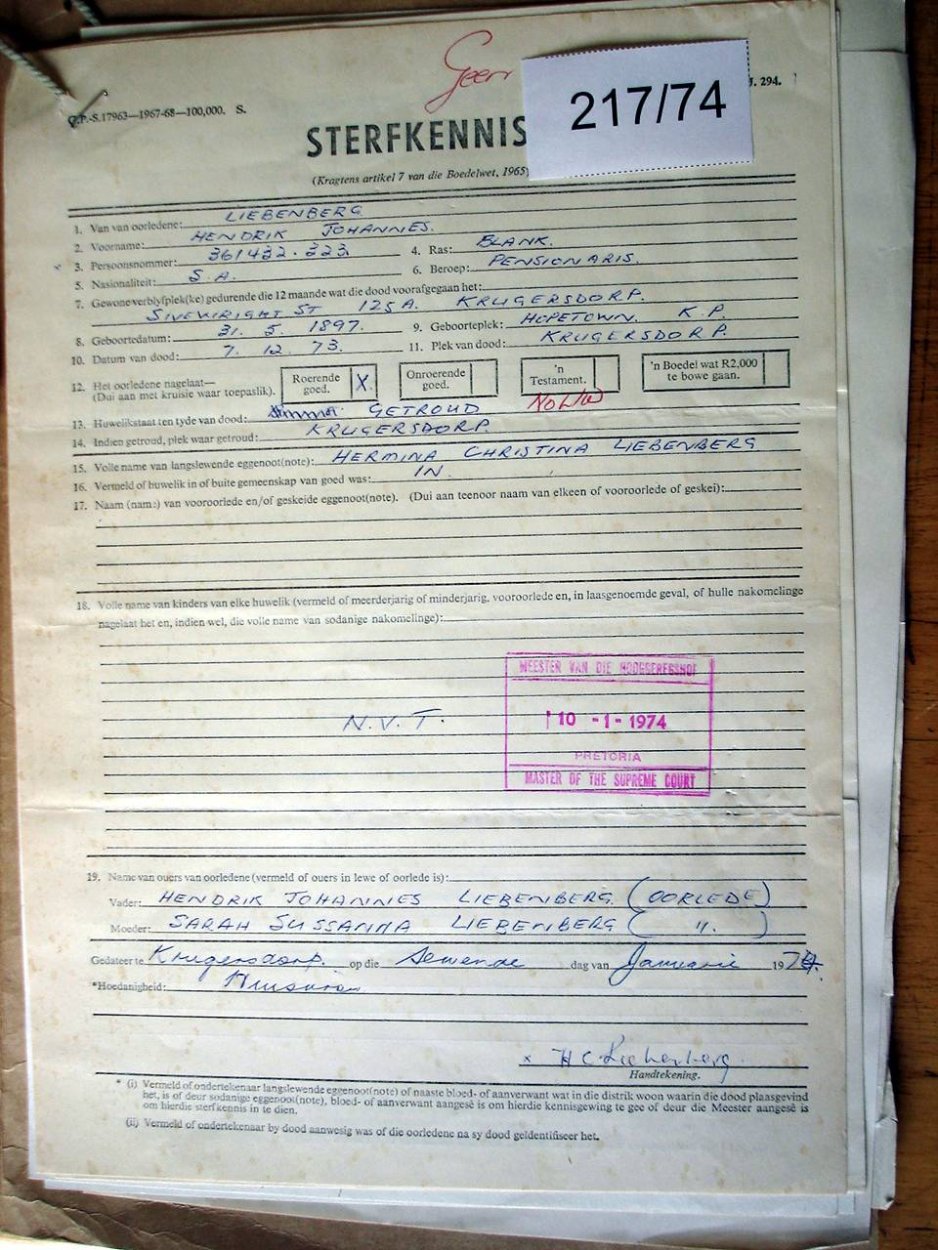 Geen
217/74
J. 294.
G.P.-S.17963—1967-68—100,000. S.
STERFKENNIS
(Kragtens artikel 7 van die Boedelwet, 1965)
1. Van van oorledene: LIEBENBERG
2. Voorname: HENDRIK JOHANNES.
x 3. Persoonsnommer: 361432.323 4. Ras: BLANK.
5. Nasionaliteit: S.A. 6. Beroep: PENSIONARIS.
7. Gewone verblyfplek(ke) gedurende die 12 maande wat die dood voorafgegaan het:
SIVEWRIGHT ST 125A. KRUGERSDORP.
8. Geboortedatum: 31. 5. 1897. 9. Geboorteplek: HOPETOWN. K.P.
10. Datum van dood: 7. 12. 73. 11. Plek van dood: KRUGERSDORP.
12. Het oorledene nagelaat— Roerende goed. X Onroerende goed. 'n Testament. 'n Boedel wat R2,000 te bowe gaan.
(Dui aan met kruisie waar toepaslik).
13. Huwelikstaat ten tyde van dood: GETROUD
14. Indien getroud, plek waar getroud: KRUGERSDORP.
15. Volle name van langslewende eggenoot(note): HERMINA CHRISTINA LIEBENBERG
16. Vermeld of huwelik in of buite gemeenskap van goed was: IN
17. Naam (name) van vooroorlede en/of geskeide eggenoot(note). (Dui aan teenoor naam van elkeen of vooroorlede of geskei):
18. Volle name van kinders van elke huwelik (vermeld of meerderjarig of minderjarig, vooroorlede en, in laasgenoemde geval, of hulle nakomelinge
nagelaat het en, indien wel, die volle name van sodanige nakomelinge):
MEESTER VAN DIE HOOGGEREGSHOF
N.V.T.
10 -1- 1974
PRETORIA
MASTER OF THE SUPREME COURT
19. Name van ouers van oorledene (vermeld of ouers in lewe of oorlede is):
Vader: HENDRIK JOHANNES LIEBENBERG (OORLEDE)
Moeder: SARAH SUSSANNA LIEBENBERG ( ". )
Gedateer te Krugersdorp. op die Sewende dag van Januarie 1974.
*Hoedanigheid:
x H C Liebenberg
Handtekening.
* (i) Vermeld of ondertekenaar langslewende eggenoot(note) of naaste bloed- of aanverwant wat in die distrik woon waarin die dood plaasgevind
het, is of deur sodanige eggenoot(note), bloed- of aanverwant aangesê is om hierdie kennisgewing te gee of deur die Meester aangesê is
om hierdie sterfkennis in te dien.
(ii) Vermeld of ondertekenaar by dood aanwesig was of die oorledene na sy dood geïdentifiseer het.